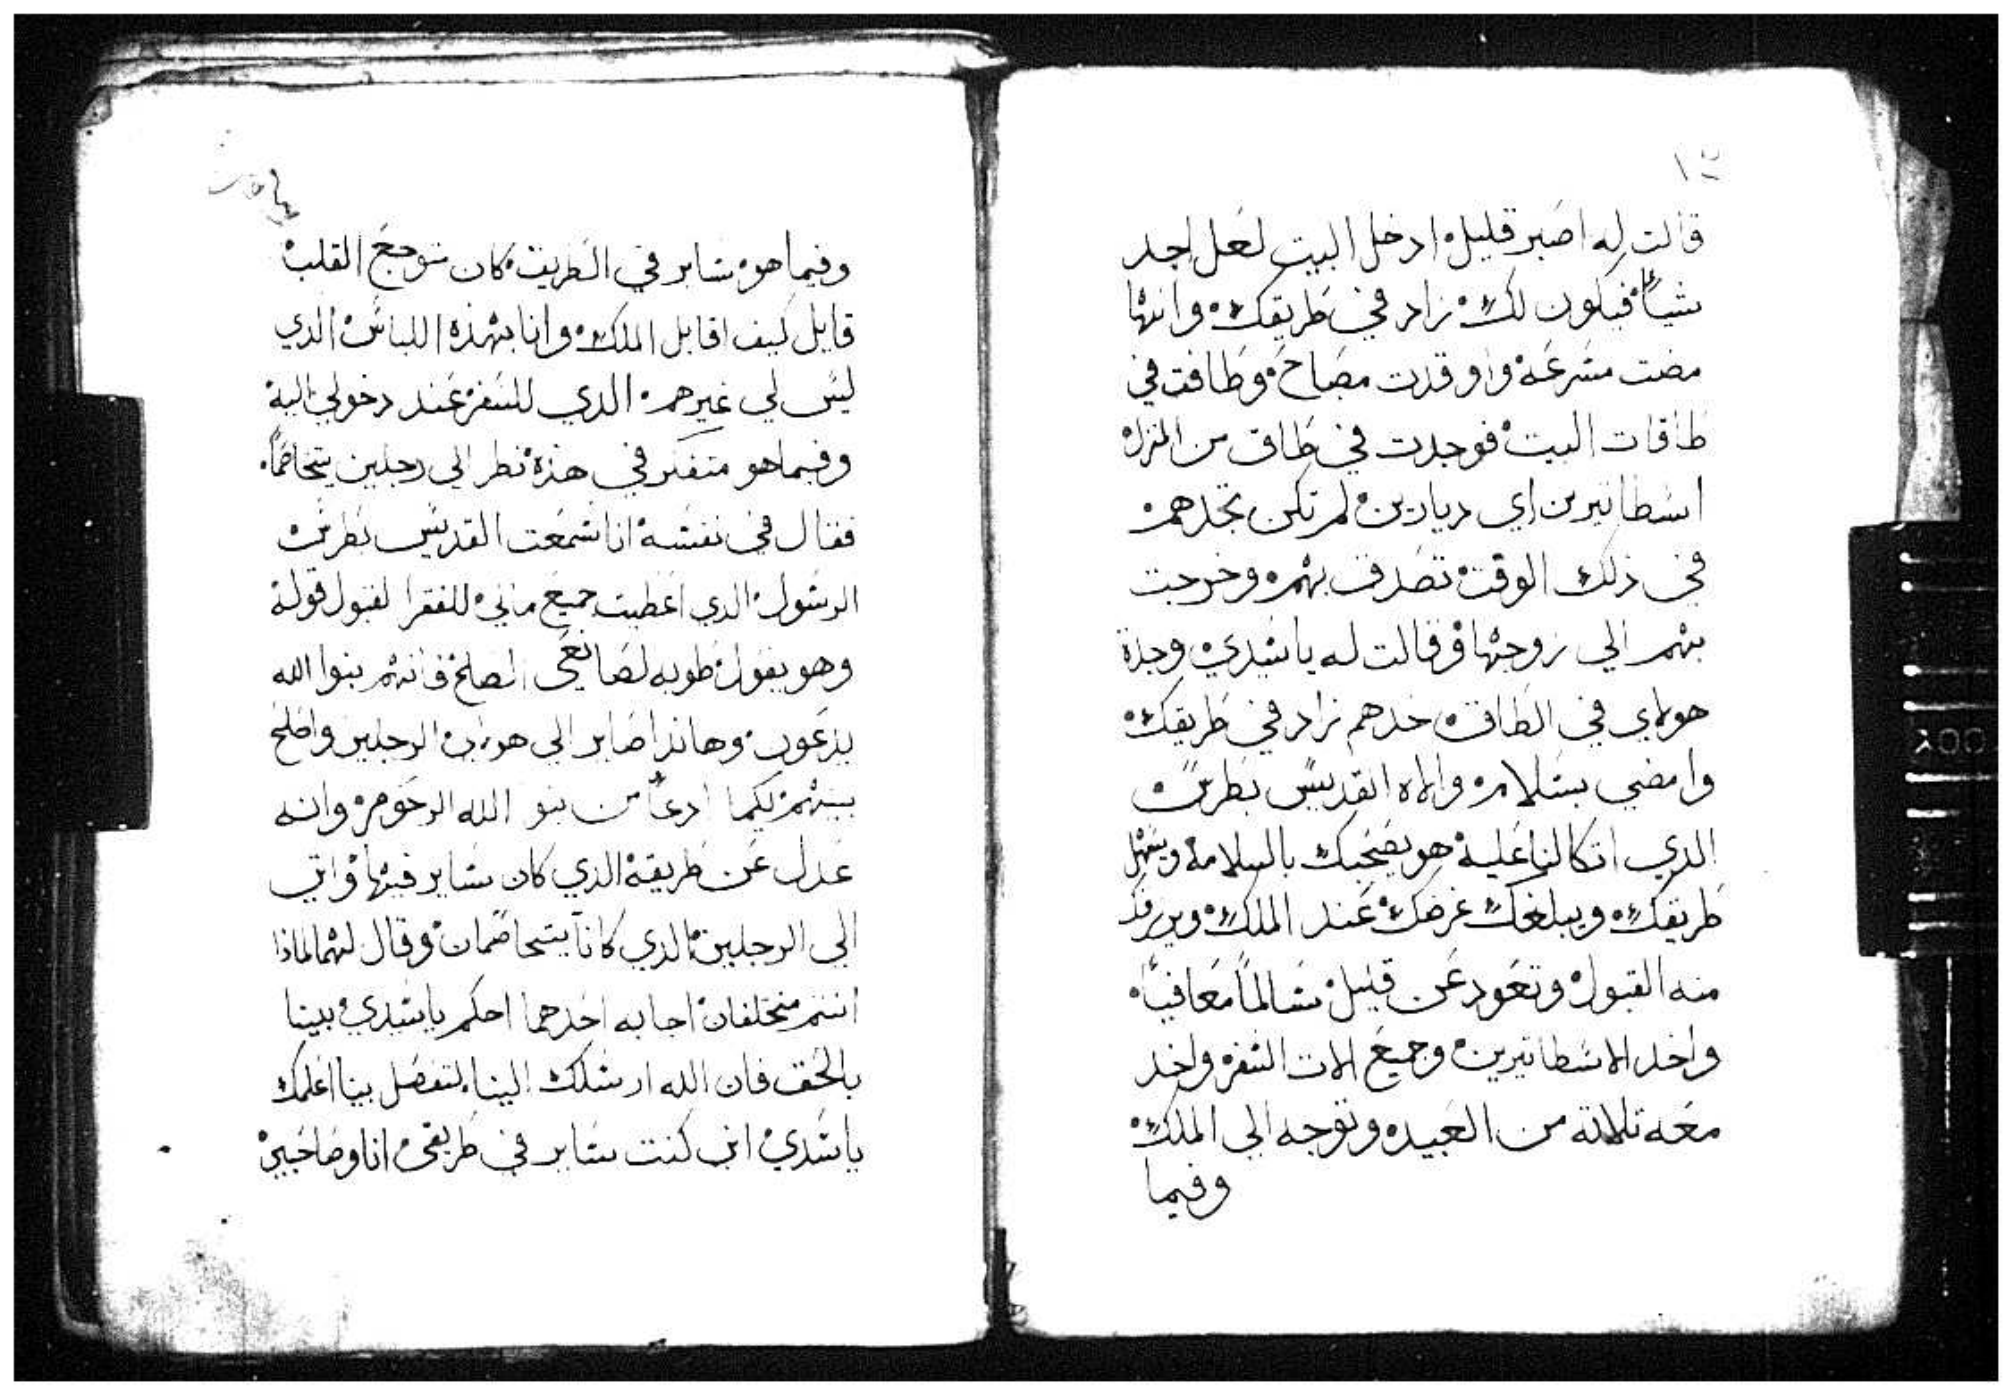 قالت له اصبر قليل ادخل البيت لعل اجد
شياً فيكون لك زاد في طريقك وانها
مضت مسرعه واوقدت مصباح وطافت في
طاقات البيت فوجدت في طاق من المنزل
اسطاتيرين اي ديارين لم تكن تجدهم
في ذلك الوقت تصدق بهم وخرجت
بهم الي زوجها وقالت له ياسيدي وجدة
هولاي في الطاقه خدهم زاد في طريقك
وامضي بسلام والاه القديس بطرس
الذي اتكالنا عليه هو يصحبك بالسلامة ويسهل
طريقك ويبلغك غرضك عند الملك ويرزقك
منه القبول وتعود عن قليل سالماً معافياً
واخد الاسطاتيرين وجميع الات السفر واخد
معه تلاتة من العبيد وتوجه الي الملك
وفيما
وفيما هو ساير في الطريق كان متوجع القلب
قايل كيف اقابل الملك وانا بهذه اللباس الذي
ليس لي غيرهم الذي للسفر عند دخولي اليه
وفيما هو متفكر في هذه نظر الي رجلين يتخاصما
فقال في نفسه انا سمعت القديس بطرس
الرسول الذي اعطيت جميع مالي للفقرا لقبول قوله
وهو يقول طوبه لصانعي الصلح فانهم بنوا الله
يدعون وهانذا صاير الي هولاي الرجلين واصلح
بينهم لكيما ادعاً من بنو الله الرحوم وانه
عدل عن طريقه الذي كان ساير فيها واتي
الي الرجلين الذي كانا يتخاصمان وقال لهما لماذا
انتم مختلفان اجابه احدهما احكم ياسيدي بينا
بالحق فان الله ارسلك الينا لتفصل بينا اعلمك
ياسيدي اني كنت ساير في طريقي انا وصاحبي